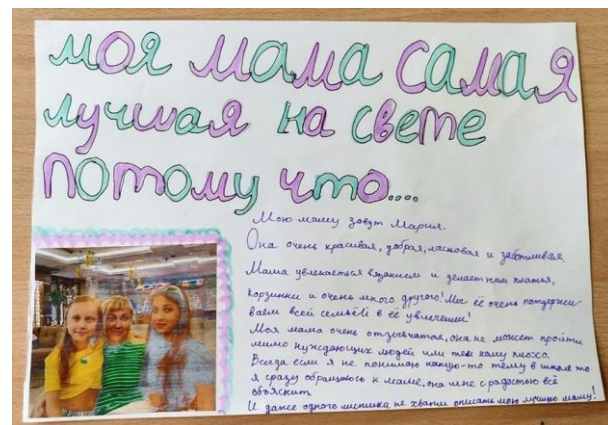 моя мама самая
лучшая на свете
потому что....
Мою маму зовут Мария.
Она очень красивая, добрая, ласковая и заботливая.
Мама увлекаеться вязанием и делает нам платья,
корзинки и очень много другого! Мы её очень поддержи-
ваем всей семьёй в её увлечении!
Моя мама очень отзывчатая, она не может пройти
мимо нуждающих людей или тем кому плохо.
Всегда если я не понимаю какую-то тему в школе то
я сразу обращаюсь к маме, она мне с радостью всё
объяснит.
И даже одного листика не хватит описать мою лучшую маму!